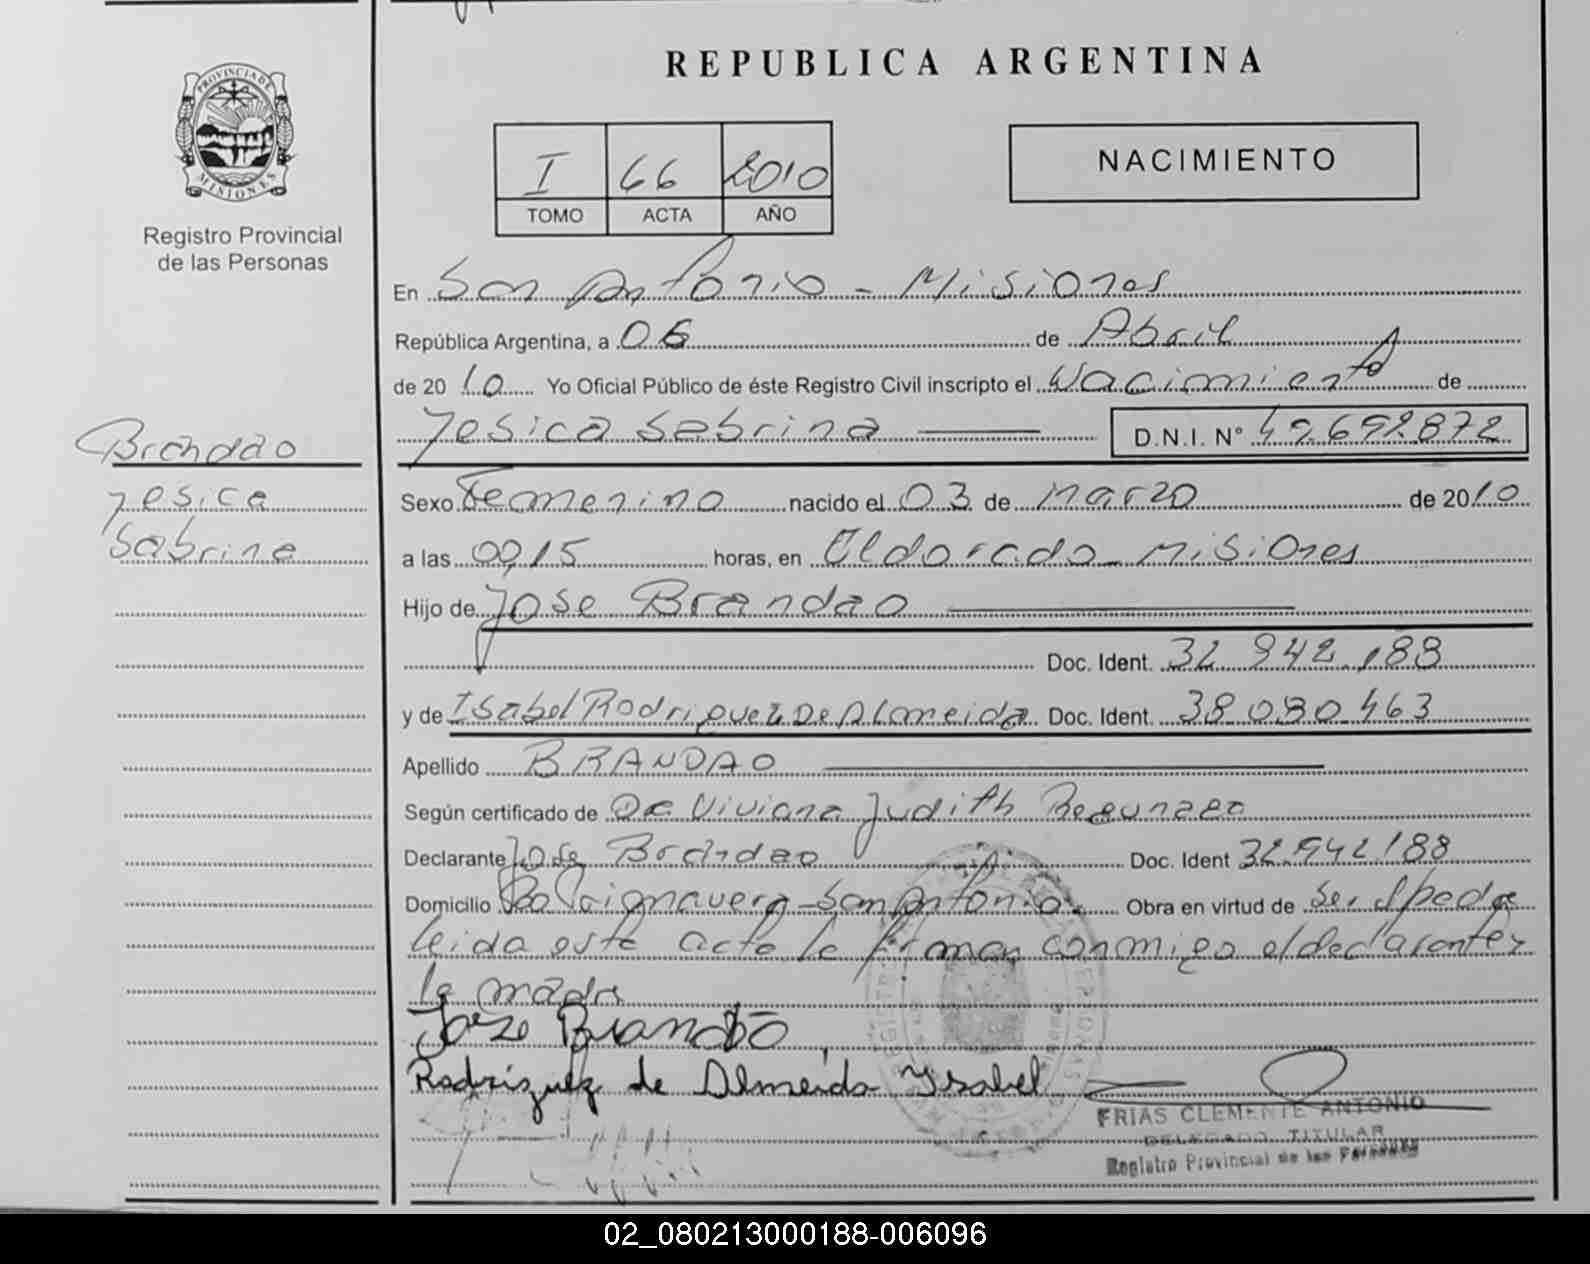 REPUBLICA ARGENTINA
PROVINCIA DE MISIONES
Registro Provincial
de las Personas
I 66 2010
TOMO ACTA AÑO
NACIMIENTO
En San Antonio - Misiones
República Argentina, a 06 de Abril
de 2010 Yo Oficial Público de éste Registro Civil inscripto el Nacimiento de
Yesica Sabrina D.N.I. Nº 49.692.872
Brandao
Yesica
Sabrina
Sexo Femenino nacido el 03 de Marzo de 2010
a las 00,15 horas, en Eldorado - Misiones
Hijo de Jose Brandao
Doc. Ident. 32 942.188
y de Isabel Rodriguez De Almeida Doc. Ident. 38 090 463
Apellido BRANDAO
Según certificado de Dra Viviana Judith
Declarante Jose Brandao Doc. Ident 32.942.188
Domicilio San Antonio. Obra en virtud de Ser
leida este acta la firman conmigo el declarante y
la madre
Jose Brandão
Rodriguez de Almeida Ysabel
FRIAS CLEMENTE ANTONIO
DELEGADO TITULAR
Registro Provincial de las Personas
02_080213000188-006096